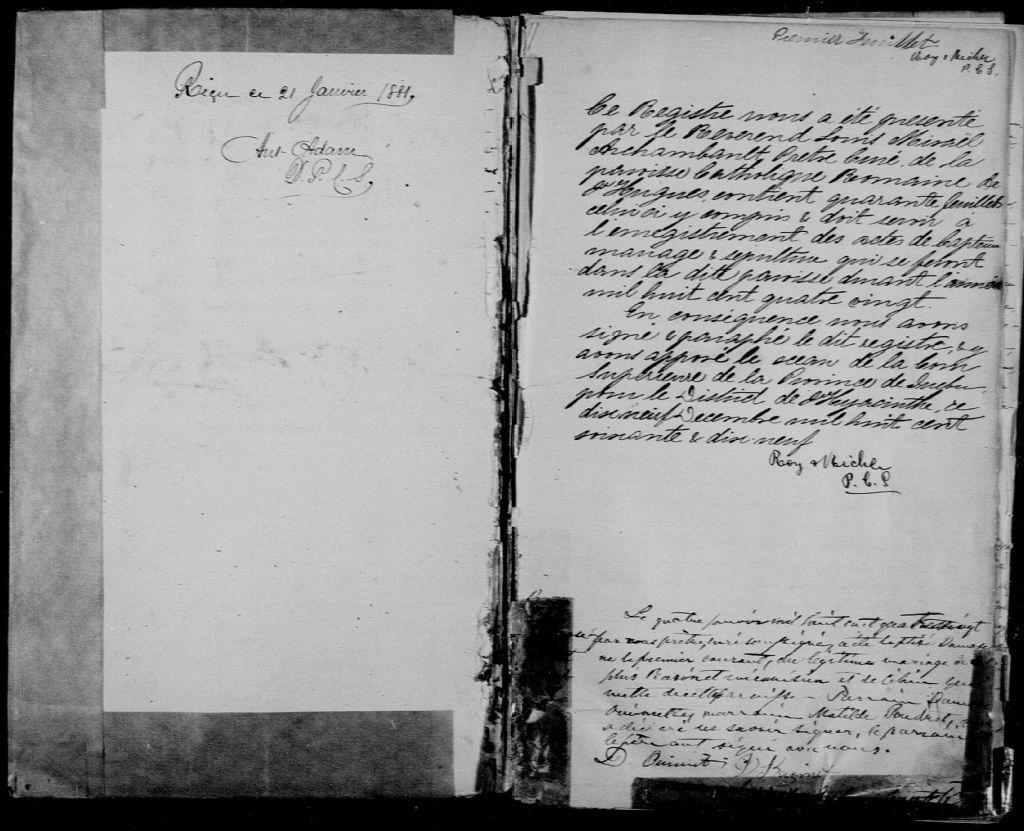 Reçu ce 21 Janvier 1881.
Ant. Adam
D. P. C. S.
Premier Feuillet
Roy & Micher
P. C. S.
Ce Registre nous a été présenté
par le Reverend Louis Misaël
Archambault, Prêtre Curé, de la
paroisse Catholique Romaine de
St Hugues, contient quarante feuillets
celui-ci y compris & doit servir à
l'enregistrement des actes de baptême
mariage & sépulture qui se feront
dans la dite paroisse durant l'année
mil huit cent quatre vingt.
En conséquence nous avons
signé & paraphé le dit registre, & y
avons apposé le sceau de la Cour
Supérieure de la Province de
pour le District de St Hyacinthe, ce
dix neuf Decembre mil huit cent
soixante & dix-neuf
Roy & Micher
P. C. S.
Le quatre janvier mil huit cent quatre vingt
par nous prêtre, curé soussigné, a été baptisé
né le premier courant, du légitime mariage de
et de
de cette paroisse - Parrain
marraine Matilde
a déclaré ne savoir signer, le parrain
le père ont signé avec nous.
D.